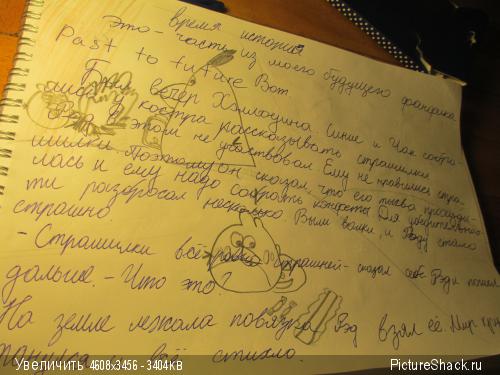 время истории
Это - часть из моего будущего фанфика
Past to future Bom
Был вечер Хэллоуина. Синие и Чак
у костра рассказывать страшилки
Рэд в этом не участвовал Ему не нравились стра-
шилки Поэтому он сказал, что его тыква
лась и ему надо собрать конфеты Для
ти разбросал несколько Выли волки, и Рэду стало
страшно
- Страшилки всё равно страшней - сказал себе Рэд и пошел
дальше. - Что это?
На земле лежала повязка Рэд взял её. Мир
и всё стихло.
Увеличить 4608x3456 - 3404KB
PictureShack.ru